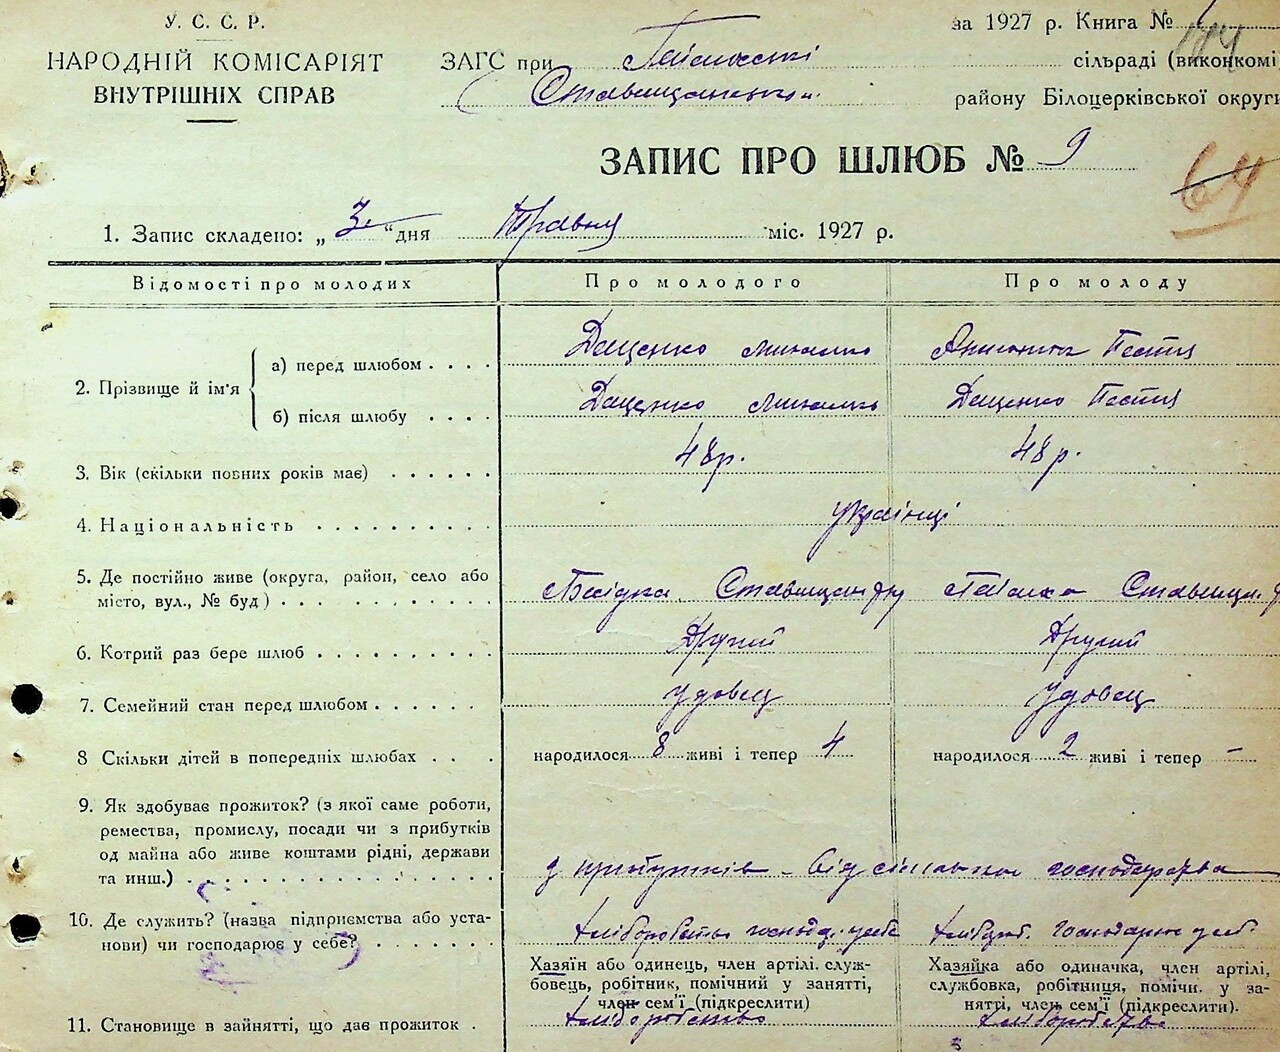 У. С. С. Р.
НАРОДНІЙ КОМІСАРІЯТ
ВНУТРІШНІХ СПРАВ
за 1927 р. Книга №
ЗАГС при сільраді (виконкомі
Ставищанськ району Білоцерківської округи
ЗАПИС ПРО ШЛЮБ № 9
64
1. Запис складено: „ 3 “ дня Травня міс. 1927 р.
Відомості про молодих Про молодого Про молоду
2. Прізвище й ім'я
а) перед шлюбом . . . . Даценко Михайло
б) після шлюбу . . . . Даценко Михайло Даценко
3. Вік (скільки повних років має) . . . . . . 48 р. 48 р.
4. Національність . . . . . . . . . . українці
5. Де постійно живе (округа, район, село або
місто, вул., № буд) . . . . . . . . . . Ставищан
6. Котрий раз бере шлюб . . . . . . . . . . Другий Другий
7. Семейний стан перед шлюбом . . . . . . удовец удовец
8 Скільки дітей в попередніх шлюбах . . . народилося 8 живі і тепер 4 народилося 2 живі і тепер —
9. Як здобуває прожиток? (з якої саме роботи,
ремества, промислу, посади чи з прибутків
од майна або живе коштами рідні, держави
та инш.) . . . . . . . . . . . . з прибутків від сільського господарства
10. Де служить? (назва підприємства або уста-
нови) чи господарює у себе? . . . . . . .
Хазяїн або одинець, член артілі. служ-
бовець, робітник, помічний у занятті,
член сем'ї (підкреслити)
Хазяйка або одиначка, член артілі,
службовка, робітниця, помічн. у за-
нятті, член сем'ї (підкреслити).
11. Становище в зайнятті, що дає прожиток . хліборобство хліборобство